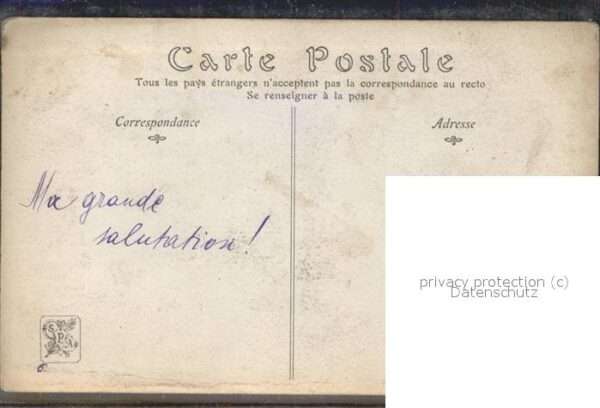 Carte Postale
Tous les pays étrangers n'acceptent pas la correspondance au recto
Se renseigner à la poste
Correspondance
Adresse
Ma grande
salutation!
privacy protection (c)
Datenschutz